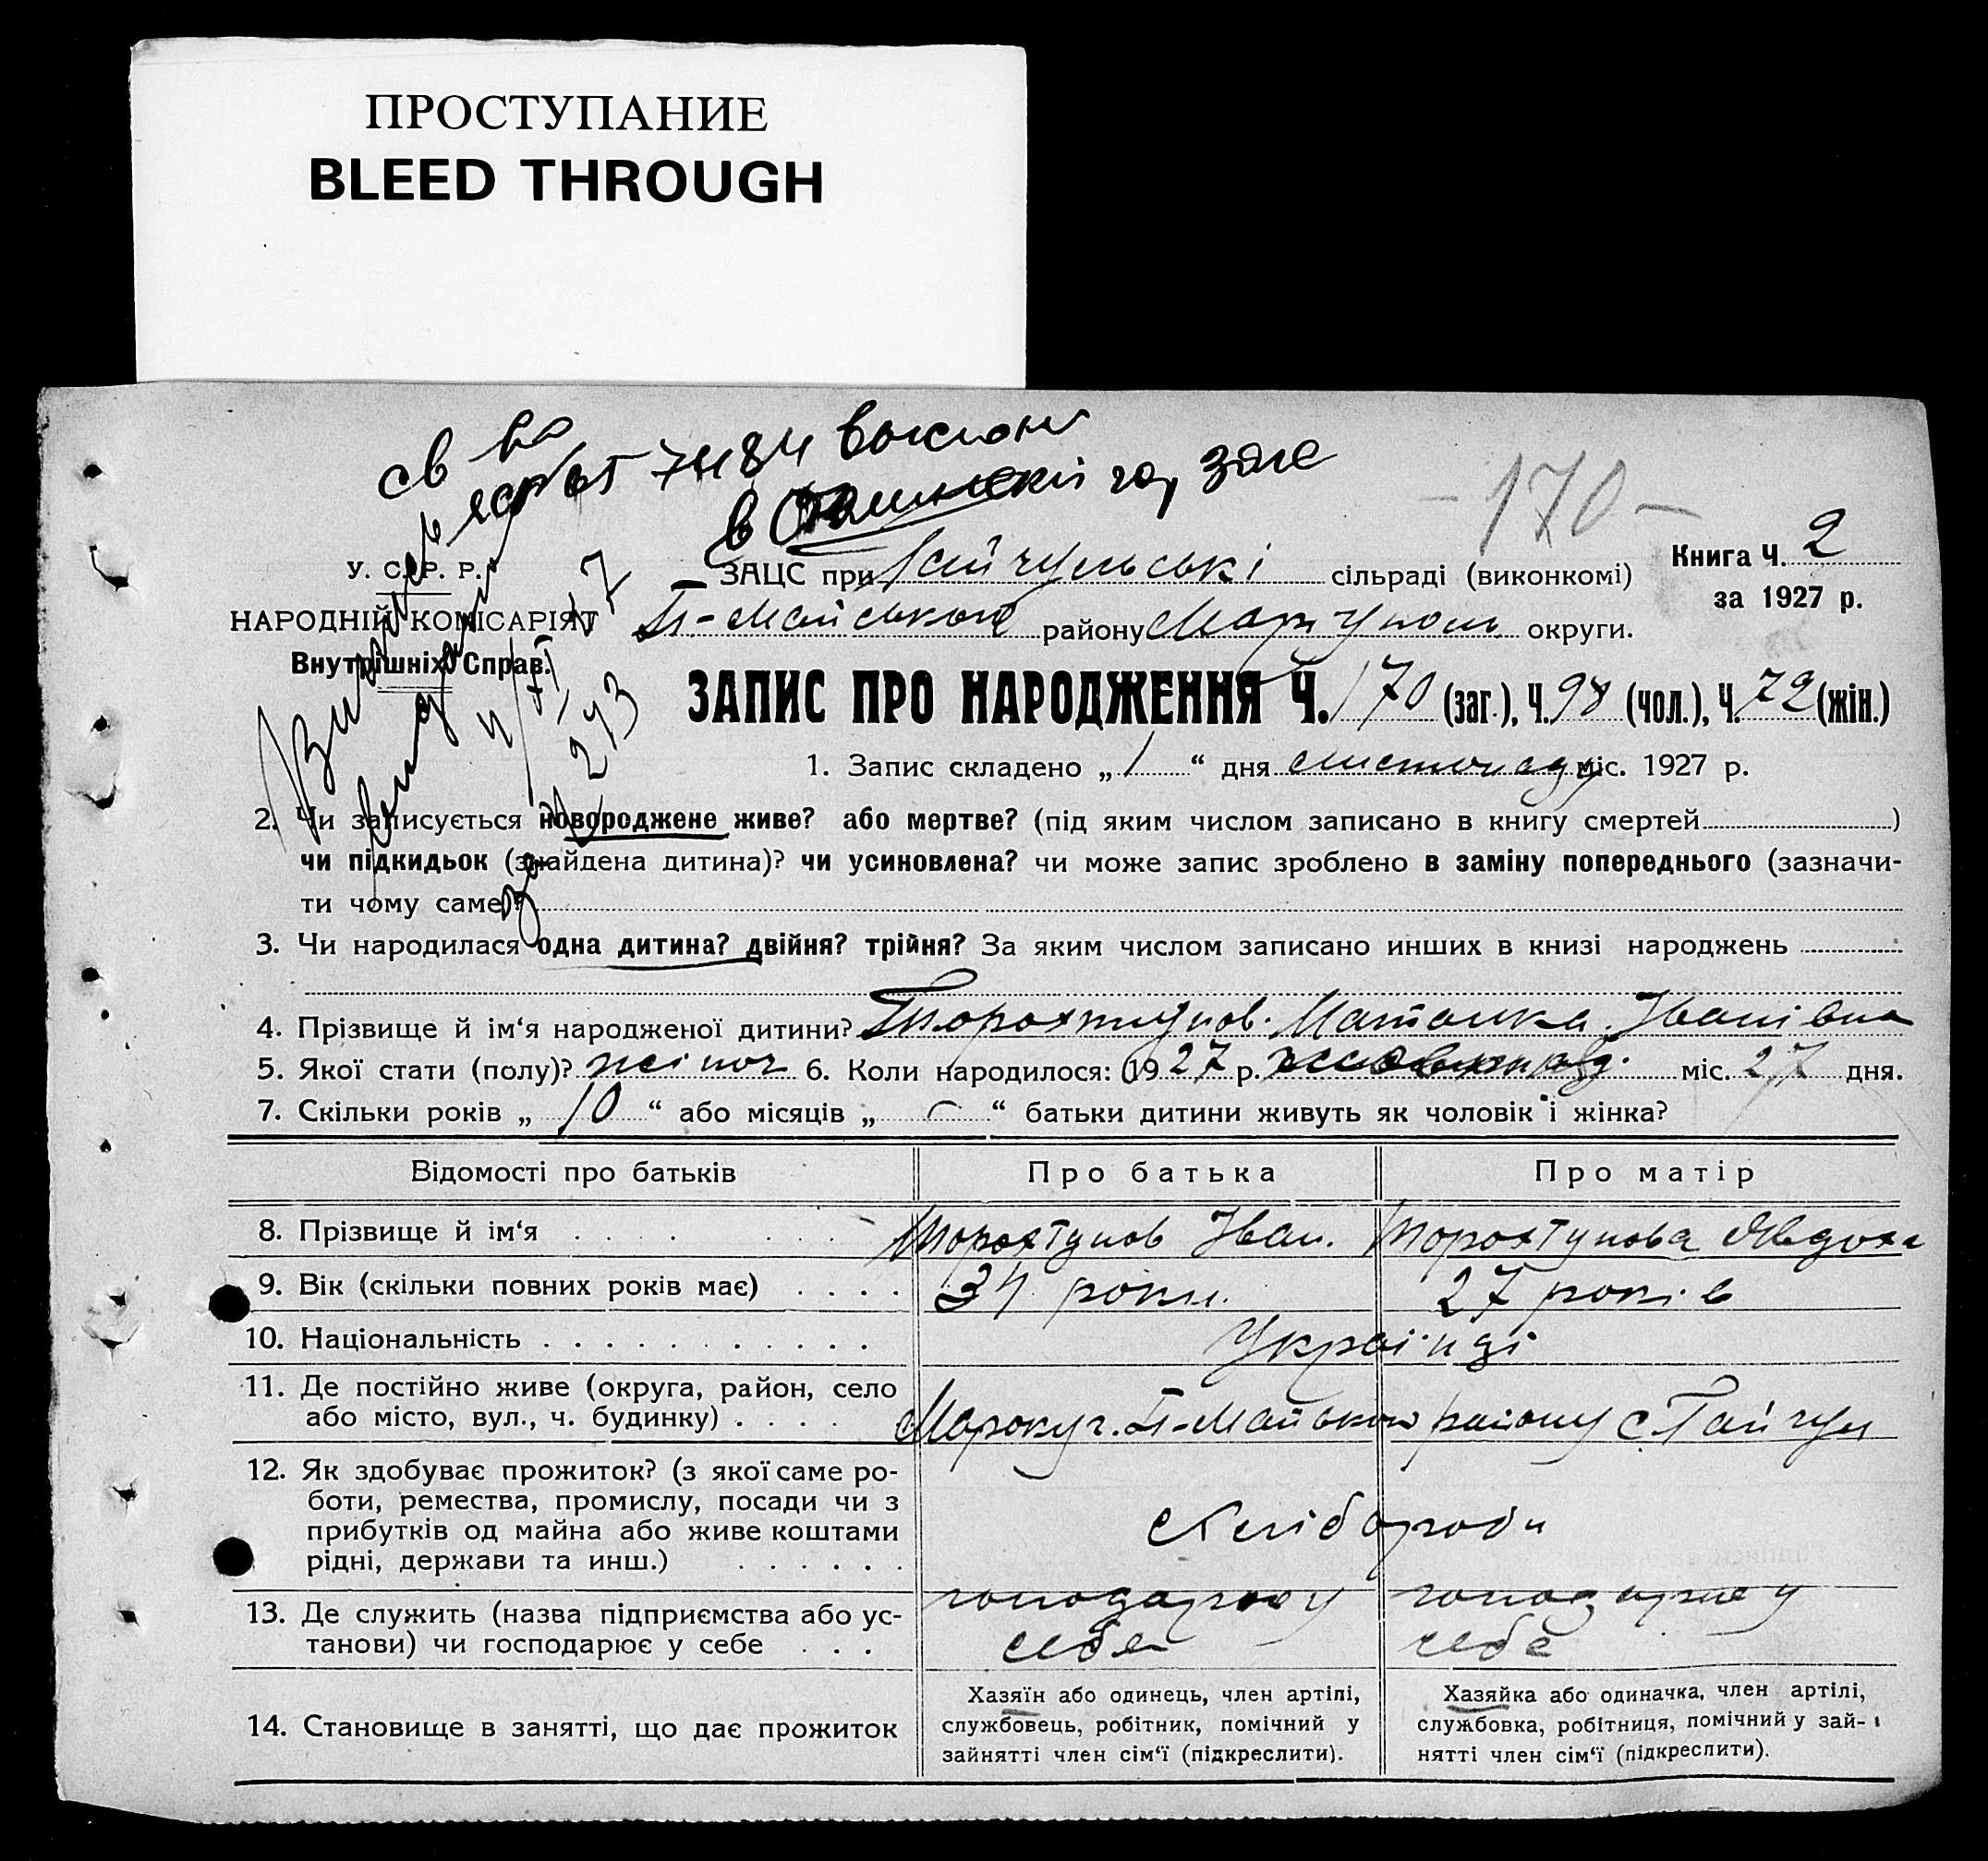 ПРОСТУПАНИЕ
BLEED THROUGH
св во
74184
в Сталинский гор загс
-170-
У. С. Р. Р.
НАРОДНІЙ КОМІСАРІЯТ
Внутрішніх Справ.
ЗАЦС при Гайчульські сільраді (виконкомі)
П-Майського району Маріуполь округи.
Книга Ч. 2
за 1927 р.
ЗАПИС ПРО НАРОДЖЕННЯ Ч. 170 (заг.), Ч. 98 (чол.), Ч. 72 (жін.)
1. Запис складено „ 1 “ дня листопаду міс. 1927 р.
2. Чи записується новороджене живе? або мертве? (під яким числом записано в книгу смертей)
чи підкидьок (знайдена дитина)? чи усиновлена? чи може запис зроблено в заміну попереднього (зазначи-
ти чому саме)?
3. Чи народилася одна дитина? двійня? трійня? За яким числом записано инших в книзі народжень
4. Прізвище й ім‘я народженої дитини? Торохтунов. Наталка. Іванівна
5. Якої стати (полу)? жіноч 6. Коли народилося: 1927 р. міс. 27 дня.
7. Скільки років „ 10 “ або місяців „ - “ батьки дитини живуть як чоловік і жінка?
Відомості про батьків Про батька Про матір
8. Прізвище й ім‘я Торохтунов Іван. Торохтунова Явдоха
9. Вік (скільки повних років має) 34 роки. 27 років
10. Національність Українці
11. Де постійно живе (округа, район, село
або місто, вул., ч. будинку) П-Майсько району с Гайчул
12. Як здобуває прожиток? (з якої саме ро-
боти, ремества, промислу, посади чи з
прибутків од майна або живе коштами
рідні, держави та инш.) Хлібороби
13. Де служить (назва підприємства або ус-
танови) чи господарює у себе
господарює у себе
господарює у себе
14. Становище в занятті, що дає прожиток
Хазяїн або одинець, член артілі,
службовець, робітник, помічний у
зайнятті член сім‘ї (підкреслити).
Хазяйка або одиначка, член артілі,
службовка, робітниця, помічний у зай-
нятті член сім‘ї (підкреслити).